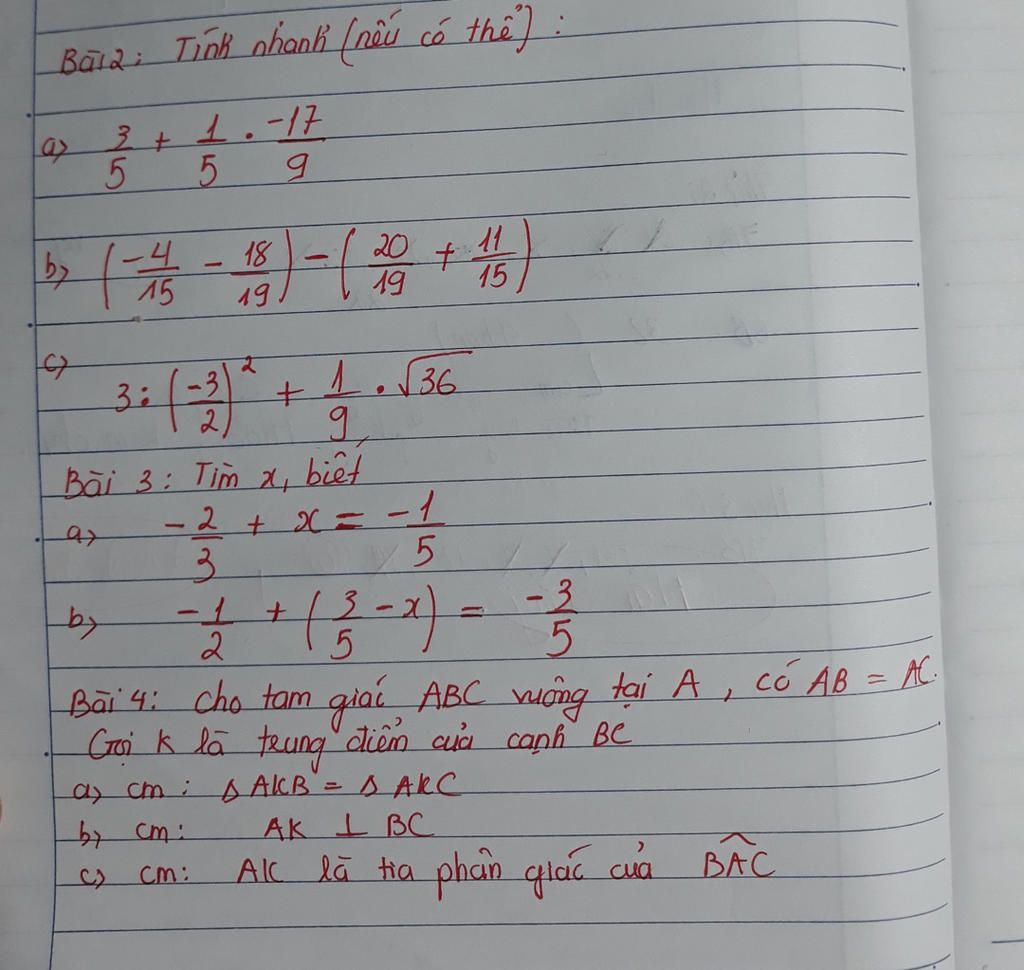 Bài 2: Tính nhanh (nếu có thể) :
a) 3/5 + 1/5 . -17/9
b) (-4/15 - 18/19) - (20/19 + 11/15)
c) 3 : (-3/2)² + 1/9 . √36
Bài 3 : Tìm x, biết
a) -2/3 + x = -1/5
b) -1/2 + (3/5 - x) = -3/5
Bài 4: Cho tam giác ABC vuông tại A , có AB = AC.
Gọi K là trung điểm của cạnh BC
a) cm : Δ AKB = Δ AKC
b) cm: AK ⊥ BC
c) cm: AK là tia phân giác của \widehat{BAC}